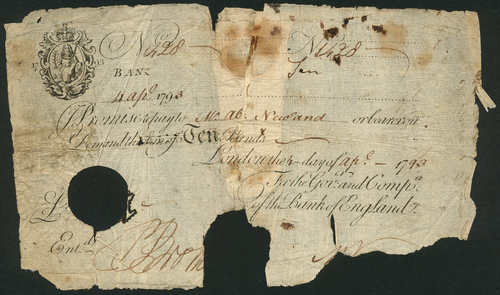 No 1428 No 1428
17 93
BANK Ten
4 Apl. 1793
I Promise to pay to Mr. Ab: Newland or bearer on
Demand the Sum of Ten Pounds
London the 4 day of Apl. 1793
For the Govr. and Compa.
of the Bank of England.
£
Entd.